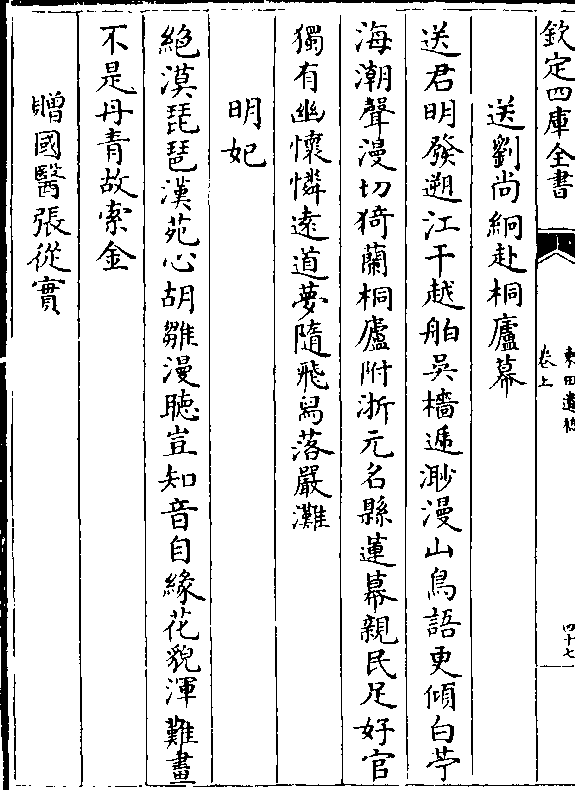 欽定四庫全書
東田遺稿
卷上
四十七
送劉尚絅赴桐廬幕
送君明發遡江干越舶吳檣遞渺漫山鳥語更傾白苧
海潮聲漫切猗蘭桐廬附浙元名縣蓮幕親民足好官
獨有幽懷憐遠道夢隨飛舄落嚴灘
明妃
絶漠琵琶漢苑心胡雛漫聽豈知音自緣花貌渾難畫
不是丹青故索金
贈國醫張從實